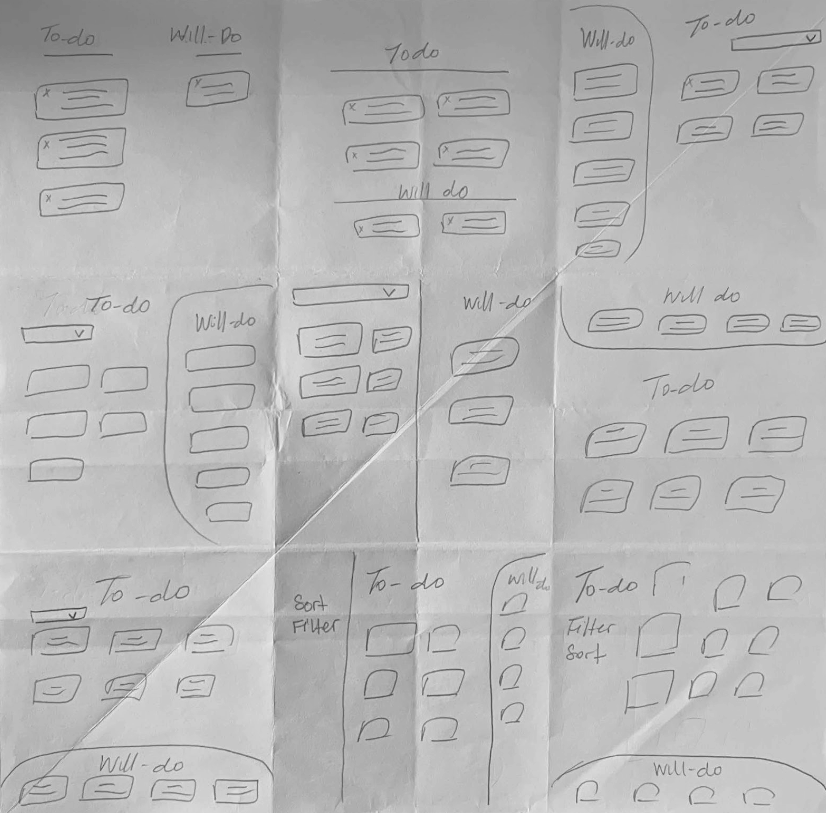 To-do
Will-Do
x
x
x
x
Todo
x
x
x
x
Will do
x
x
Will-do
To-do
x
To-do
Will-do
Will-do
Will do
To-do
To-do
Will-do
Sort
Filter
To-do
Will do
To-do
Filter
Sort
Will-do